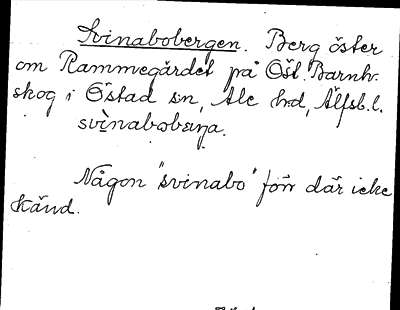 Svinabobergen. Berg öster
om Rammegärdet på Öst. Barnh.
skog i Östad sn, Ale hd, Älfsb. l.
svìnabobærja.
Någon "svinabo" förr där icke
känd.